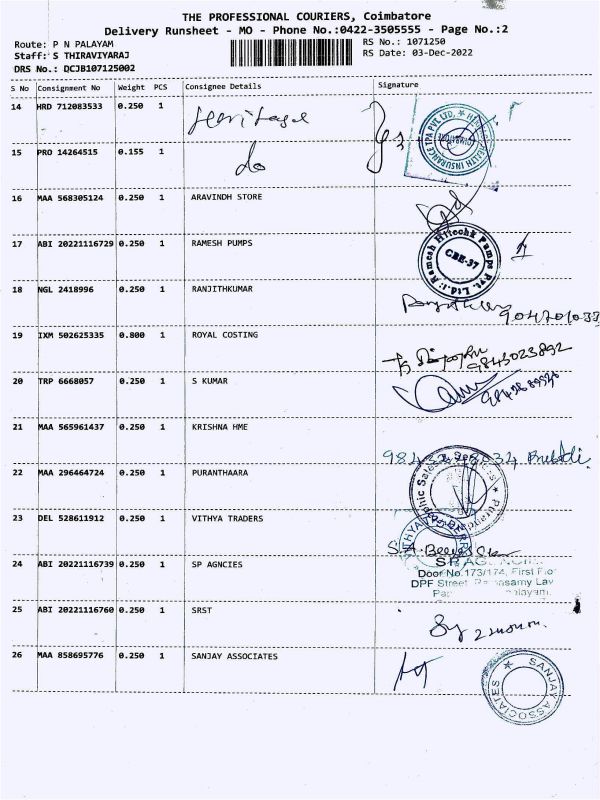 THE PROFESSIONAL COURIERS, Coimbatore
Delivery Runsheet - MO - Phone No.:0422-3505555 - Page No.:2
Route: P N PALAYAM
Staff: S THIRAVIYARAJ
DRS No.: DCJB107125002
RS No.: 1071250
RS Date: 03-Dec-2022
S No Consignment No Weight PCS Consignee Details Signature
14 HRD 712083533 0.250 1 Heritage
HEALTH INSURANCE TPA PVT. LTD.
15 PRO 14264515 0.155 1 do
16 MAA 568305124 0.250 1 ARAVINDH STORE
17 ABI 20221116729 0.250 1 RAMESH PUMPS
Ramesh Hitech Pumps Pvt. Ltd.
CBE-37
18 NGL 2418996 0.250 1 RANJITHKUMAR
19 IXM 502625335 0.800 1 ROYAL COSTING
9843023892
20 TRP 6668057 0.250 1 S KUMAR
21 MAA 565961437 0.250 1 KRISHNA HME
22 MAA 296464724 0.250 1 PURANTHAARA
23 DEL 528611912 0.250 1 VITHYA TRADERS
24 ABI 20221116739 0.250 1 SP AGNCIES
Door No.173/174, First
DPF Street
25 ABI 20221116760 0.250 1 SRST
26 MAA 858695776 0.250 1 SANJAY ASSOCIATES
SANJAY ASSOCIATES